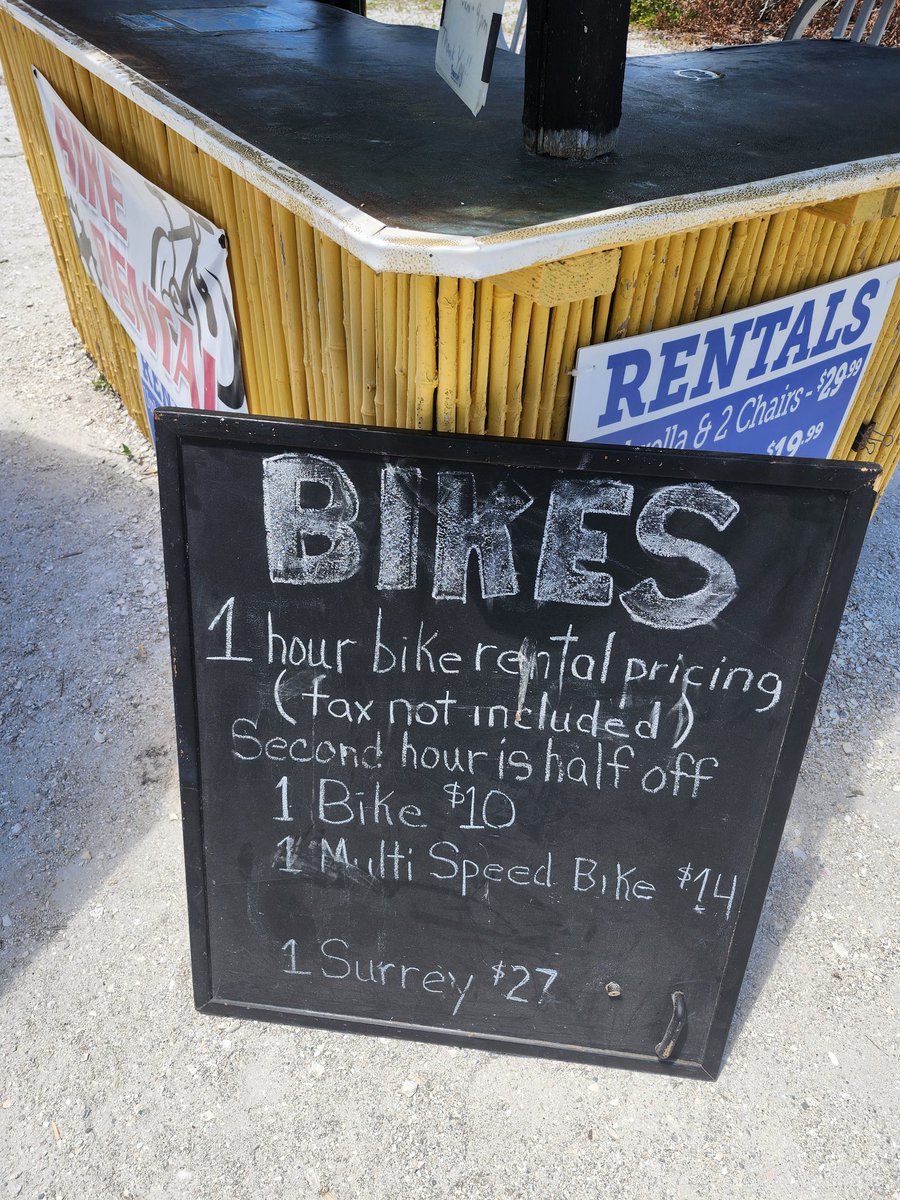 BIKE
RENTAL
RENTALS
& 2 Chairs - $29.99
$19.99
BIKES
1 hour bike rental pricing
(tax not included)
Second hour is half off
1 Bike $10
1 Multi Speed Bike $14
1 Surrey $27